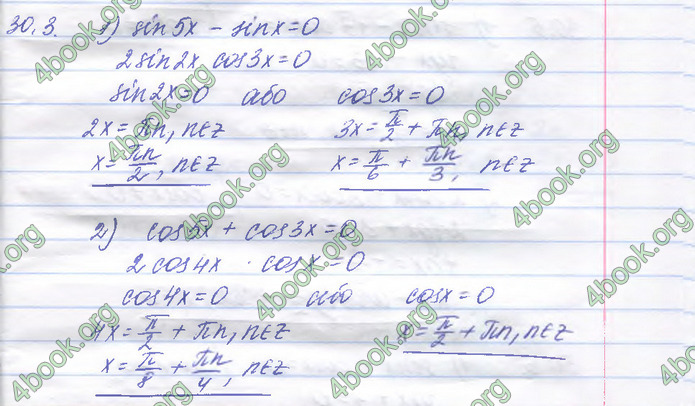 30.3. 1) sin5x - sinx=0
2sin2x cos3x=0
sin2x=0 або cos3x=0
2x= πn, n∈Z 3x= π/2 + πn, n∈Z
x= πn/2, n∈Z x= π/6 + πn/3, n∈Z
2) cos5x + cos3x=0
2cos4x · cosx=0
cos4x=0 або cosx=0
4x= π/2 + πn, n∈Z x= π/2 + πn, n∈Z
x= π/8 + πn/4, n∈Z
4book.org